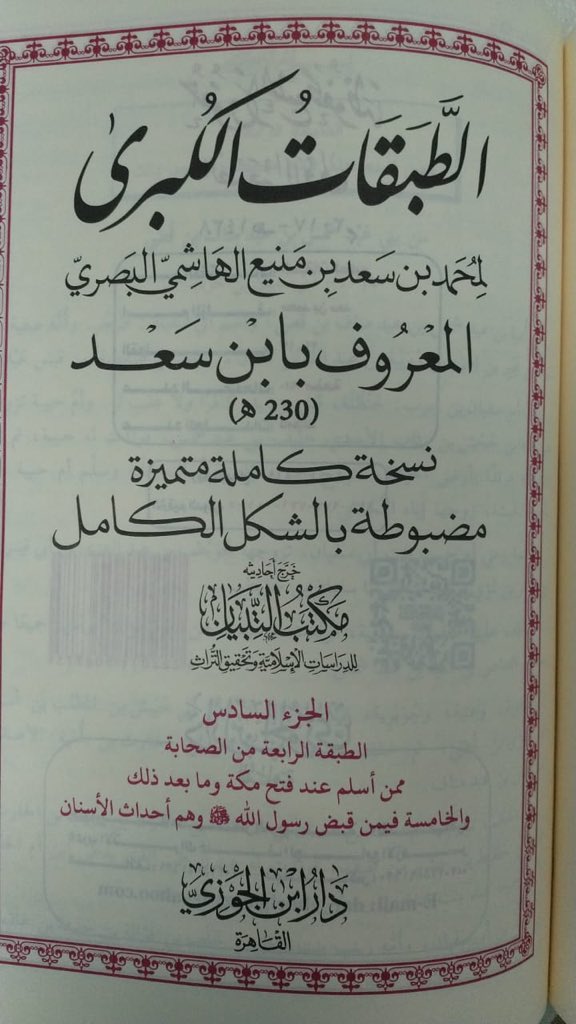 الطَّبَقَاتُ الكُبرىٰ
لمُحمَّد بن سَعدِ بنِ مَنيع الهَاشميّ البَصريّ
المَعْرُوف بابْن سَعْد
(230 هـ)
نسخة كاملة متميزة
مضبوطة بالشكل الكامل
خَرَّجَ أحَاديثه
مَكتَبُ التِّبيَان
للدراسات الإسلاميّة وتحقيق التُّراث
الجزء السادس
الطبقة الرابعة من الصحابة
ممن أسلم عند فتح مكة وما بعد ذلك
والخامسة فيمن قبض رسول الله ﷺ وهم أحداث الأسنان
دَارُ ابْن الجَوْزيّ
القَاهِرَة